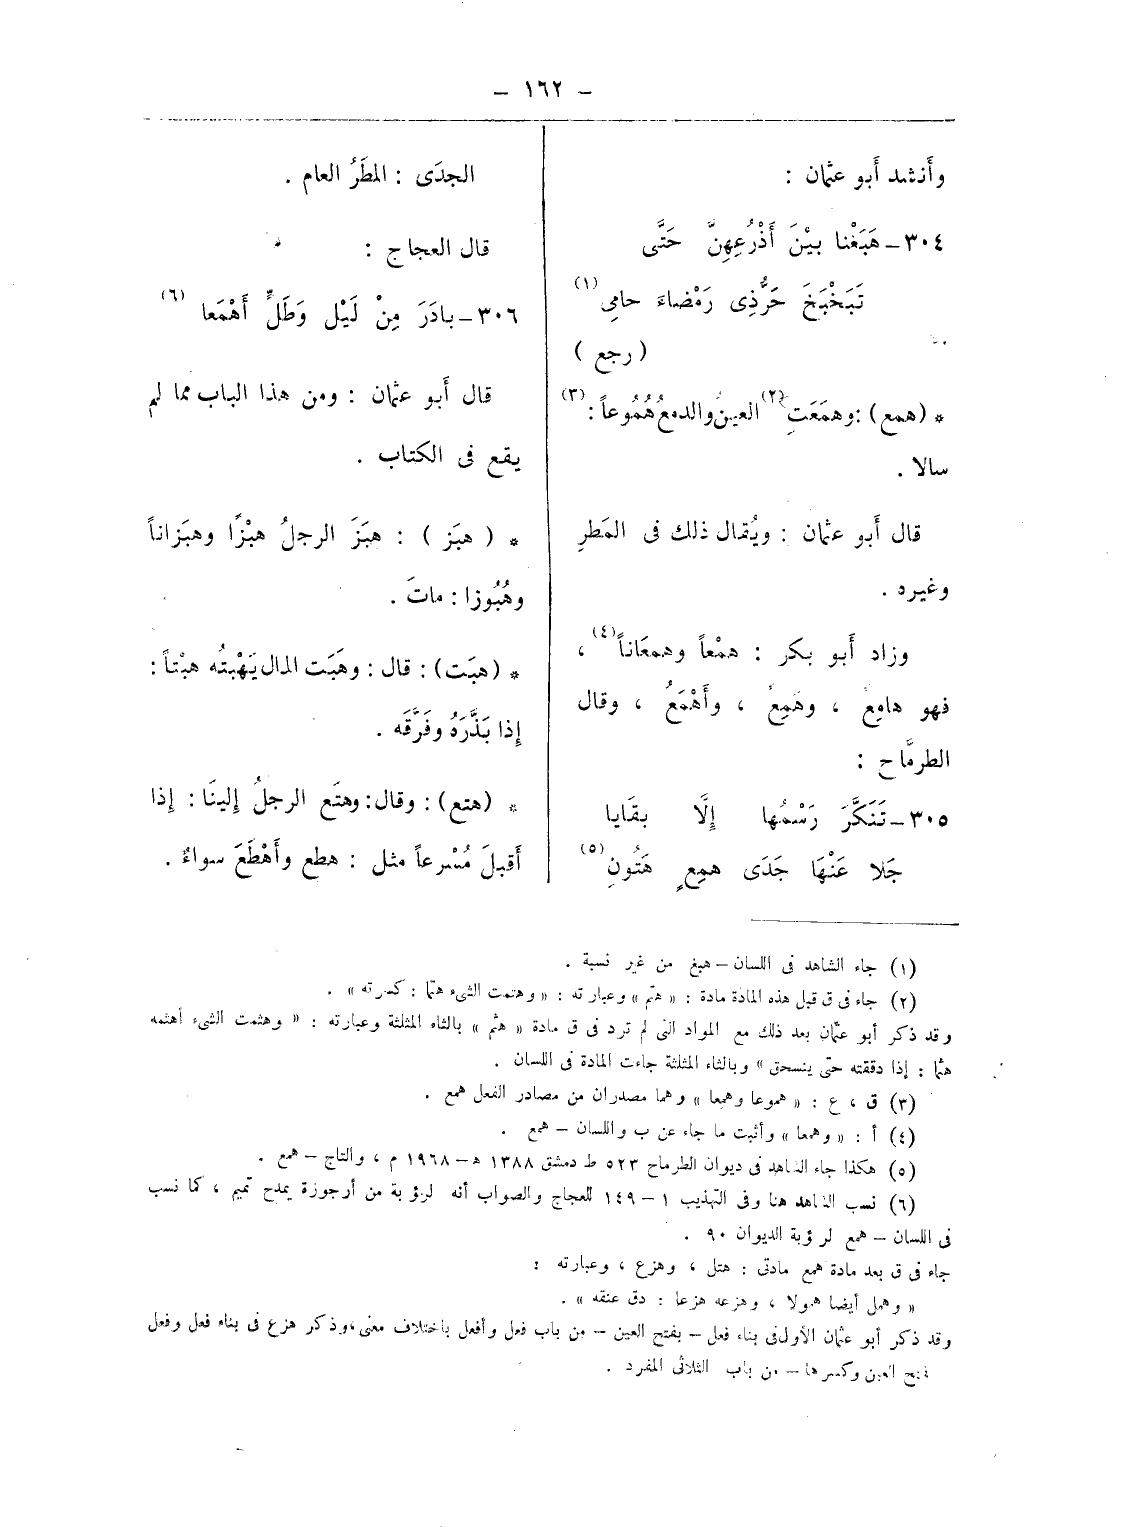 – ١٦٢ –
وأَنشد أَبو عثمان :
٣٠٤ – هَبَغْنا بيْنَ أَذْرُعِهِنَّ حَتَّى
تَبَخْبَخَ حَرُّ ذِى رَمْضاءَ حامِى (١)
( رجع )
* (همع) : وهمَعَتِ (٢) العينُ والدمعُ هُمُوعاً : (٣)
سالا .
قال أَبو عثمان : ويُقال ذلك فى المَطرِ
وغيره .
وزاد أَبو بكر : همْعاً وهمعَاناً (٤) ،
فهو هامِعٌ ، وهَمِعٌ ، وأَهْمَعُ ، وقال
الطرمَّاح :
٣٠٥ – تَنَكَّرَ رَسْمُها إِلَّا بقَايا
جَلا عَنْهَا جَدَى همِعٍ هَتُونِ (٥)
الجدَى : المطَرُ العام .
قال العجاج :
٣٠٦ – بادَرَ مِنْ لَيْل وَطَلٍّ أَهْمَعا (٦)
قال أَبو عثمان : ومن هذا الباب مما لم
يقع فى الكتاب .
* ( هبَز ) : هبَزَ الرجلُ هبْزًا وهبَزاناً
وهُبُوزا : ماتَ .
* (هبَت) : قال : وهَبَت المال يَهْبتُه هبْتاً :
إِذا بَذَّرَهُ وفَرَّقَه .
* (هتع) : وقال : وهتَع الرجلُ إِلينَا : إِذا
أَقبلَ مُسْرعاً مثل : هطع وأَهْطَعَ سواءٌ .
(١) جاء الشاهد فى اللسان – هبغ من غير نسبة .
(٢) جاء فى ق قبل هذه المادة مادة : « هتم » وعبارته : « وهتمت الشىء هتما : كسرته » .
وقد ذكر أبو عثمان بعد ذلك مع المواد التى لم ترد فى ق مادة « هثم » بالثاء المثلثة وعبارته : « وهثمت الشىء أهثمه
هثما : إذا دققته حتى ينسحق » وبالثاء المثلثة جاءت المادة فى اللسان .
(٣) ق ، ع : « هموعا وهمعا » وهما مصدران من مصادر الفعل همع .
(٤) أ : « وهمعا » وأثبت ما جاء عن ب واللسان – همع .
(٥) هكذا جاء الشاهد فى ديوان الطرماح ٥٢٣ ط دمشق ١٣٨٨ هـ – ١٩٦٨ م ، والتاج – همع .
(٦) نسب الشاهد هنا وفى التهذيب ١ – ١٤٩ للعجاج والصواب أنه لرؤبة من أرجوزة يمدح تميم ، كما نسب
فى اللسان – همع لرؤبة الديوان ٩٠ .
جاء فى ق بعد مادة همع مادتى : هتل ، وهزع ، وعبارته :
« وهمل أيضا همولا ، وهزعه هزعا : دق عنقه » .
وقد ذكر أبو عثمان الأول فى بناء فعل – بفتح العين – من باب فعل وأفعل باختلاف معنى ، وذكر هزع فى بناء فعل وفعل
بفتح العين وكسرها – من باب الثلاثى المفرد .